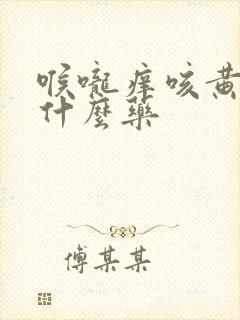 喉嚨痒咳黄
什麼藥
傅某某